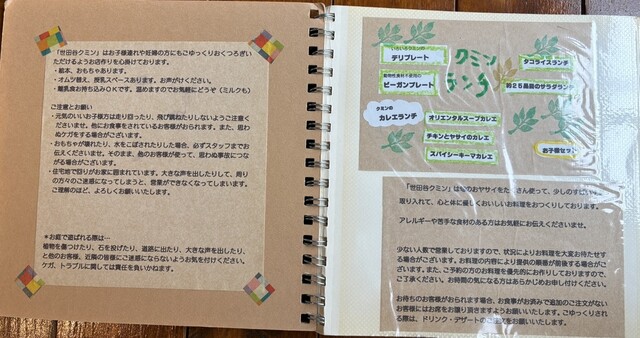 「世田谷クミン」はお子様連れや妊婦の方にもごゆっくりおくつろぎい
ただけるようお店作りを心掛けております。
・絵本、おもちゃあります。
・オムツ替え、授乳スペースあります。お声がけください。
・離乳食お持ち込みOKです。温めますのでお気軽にどうぞ（ミルクも）
ご注意とお願い
・元気のいいお子様方は走り回ったり、飛び跳ねたりしないようご注意く
ださいませ。他にお食事をされているお客様がおられます。また、思わ
ぬケガをする場合がございます。
・おもちゃが壊れたり、水をこぼされたりした場合、必ずスタッフまでお
伝えくださいませ。そのまま、他のお客様が使って、思わぬ事故につな
がる場合がございます。
・住宅地で回りがお家に囲まれています。大きな声を出したりして、周
りの方々のご迷惑になってしまうと、営業ができなくなってしまいます。
ご理解のほど、よろしくお願いいたします。
＊お庭で遊ばれる際は…
植物を傷つけたり、石を投げたり、道路に出たり、大きな声を出したり、
と他のお客様、近隣の皆様にご迷惑にならないようお気を付けください。
ケガ、トラブルに関しては責任を負いかねます。
クミン
ランチ
いろいろクミンの
デリプレート
動物性食材不使用の
ビーガンプレート
クミンの
カレエランチ
オリエンタルスープカレエ
チキンとヤサイのカレエ
スパイシーキーマカレエ
タコライスランチ
約25品目のサラダランチ
お子様セット
「世田谷クミン」は旬のおヤサイをたくさん使って、少しのスパイスを
取り入れて、心と体に優しくおいしいお料理をおつくりしております。
アレルギーや苦手な食材のある方はお気軽にお伝えくださいませ。
少ない人数で営業しておりますので、状況によりお料理を大変お待たせす
る場合がございます。お料理の内容により提供の順番が前後する場合がご
ざいます。また、ご予約の方のお料理を優先的にお作りしておりますので、
ご了承ください。お時間の気になる方はあらかじめお申し付けください。
お待ちのお客様がおられます場合、お食事がお済みで追加のご注文がない
お客様にはお席をお譲り頂きますようお願いいたします。ごゆっくりされ
る際は、ドリンク・デザートのご注文をお願いいたします。